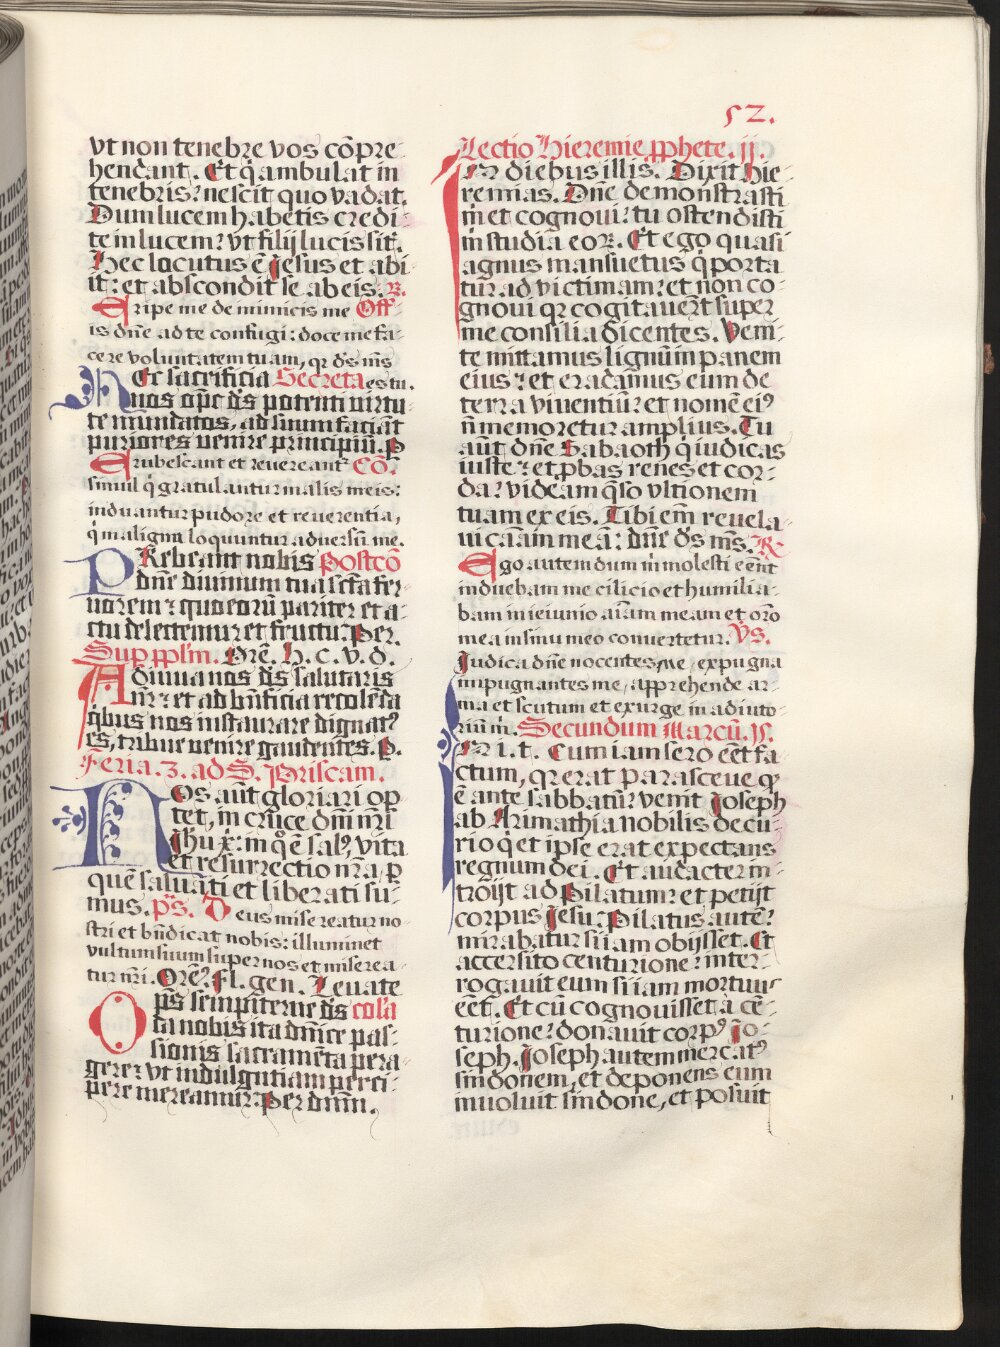 52.
vt non tenebre vos cōpre-
hendant. Et q̄ ambulat in
tenebris: nescit quo vadat.
Dum lucem habetis credi-
te in lucem: vt filij lucis sit⁊.
Hec locutus ē Jesus et abi-
it: et abscondit se ab eis. R.
Eripe me de inimicis me Off
is dn̄e ad te confugi: doce me fa-
cere voluntatem tuam, qr ds̄ ms̄
Ec sacrificia Secreta es tu.
nos op̄e ds̄ potenti virtu-
te mundatos, ad suum faciāt
puriores uenire principiū. P
Erubescant et reuereant⁊ Cō.
simul q̄ gratulantur malis meis:
induantur pudore et reuerentia,
q̄ maligna loquuntur aduersū me.
PRebeant nobis Postcō
dn̄e diuinum tua sc̄ta fer-
uorem: quo eorū pariter et a-
ctu delectemur et fructu. Per.
Sup pplm̄. Orē. h. c. v. d.
Adiuua nos ds̄ salutaris
nr̄: et ad bn̄ficia recolēda
q̄bus nos instaurare dignat⁹
es, tribue uenire gaudentes. P.
Feria. 3. ad S. Priscam.
Nos aūt gloriari op-
tet, in cruce dn̄i nr̄i
Jhu xp̄i: in q̄ ē sal⁹, vita
et resurrectio nr̄a, p
quē saluati et liberati su-
mus. ps̄. Deus misereatur no-
stri et bn̄dicat nobis: illuminet
vultum suum super nos et miserea-
tur nr̄i. Orē⁊. Fl. gen. Leuate
Omps̄ sempiterne ds̄ colā
da nobis ita dn̄ice pas-
sionis sacramēta pera-
gere: vt indulgētiam perci-
pere mereamur. Per dnm̄.
Lectio Hieremie pphete. ij.
In diebus illis. Dixit Hie-
remias. Dn̄e demonstrasti
m̄ et cognoui: tu ostendisti
m̄ studia eoꝝ. Et ego quasi
agnus mansuetus q̄ porta-
tur ad victimam: et non co-
gnoui qr cogitauer̄t super
me consilia dicentes. Veni-
te mittamus lignū in panem
eius: et eradamus eum de
terra viuentiū: et nomē ei⁹
n̄ memoretur amplius. Tu
aūt dn̄e Sabaoth q̄ iudicas
iuste: et pbas renes et cor-
da: videam q̄so vltionem
tuam ex eis. Tibi em̄ reuela-
ui cām meā: dn̄e ds̄ ms̄. R
Ego autem dum m̄ molesti eēnt
induebam me cilicio et humilia-
bam in ieiunio aīam meam et oro
mea in sinu meo conuertetur. Vs.
Judica dn̄e nocentes me, expugna
impugnantes me, apprehende ar-
ma et scutum et exurge in adiuto-
riū m̄. Secundum Marcū. 15.
In i. t. Cum iam sero eēt fa-
ctum, qr erat parasceue qd̄
ē ante sabbatū: venit Joseph
ab Arimathia nobilis decu-
rio q̄ et ipse erat expectans
regnum dei. Et audacter in-
troijt ad Pilatum: et petijt
corpus Jesu. Pilatus autē:
mirabatur si iam obijsset. Et
accersito centurione: inter-
rogauit eum si iam mortuus
eēt. Et cū cognouisset a cē-
turione: donauit corp⁹ Jo-
seph. Joseph autem mercat⁹
sindonem, et deponens eum
inuoluit sindone, et posuit